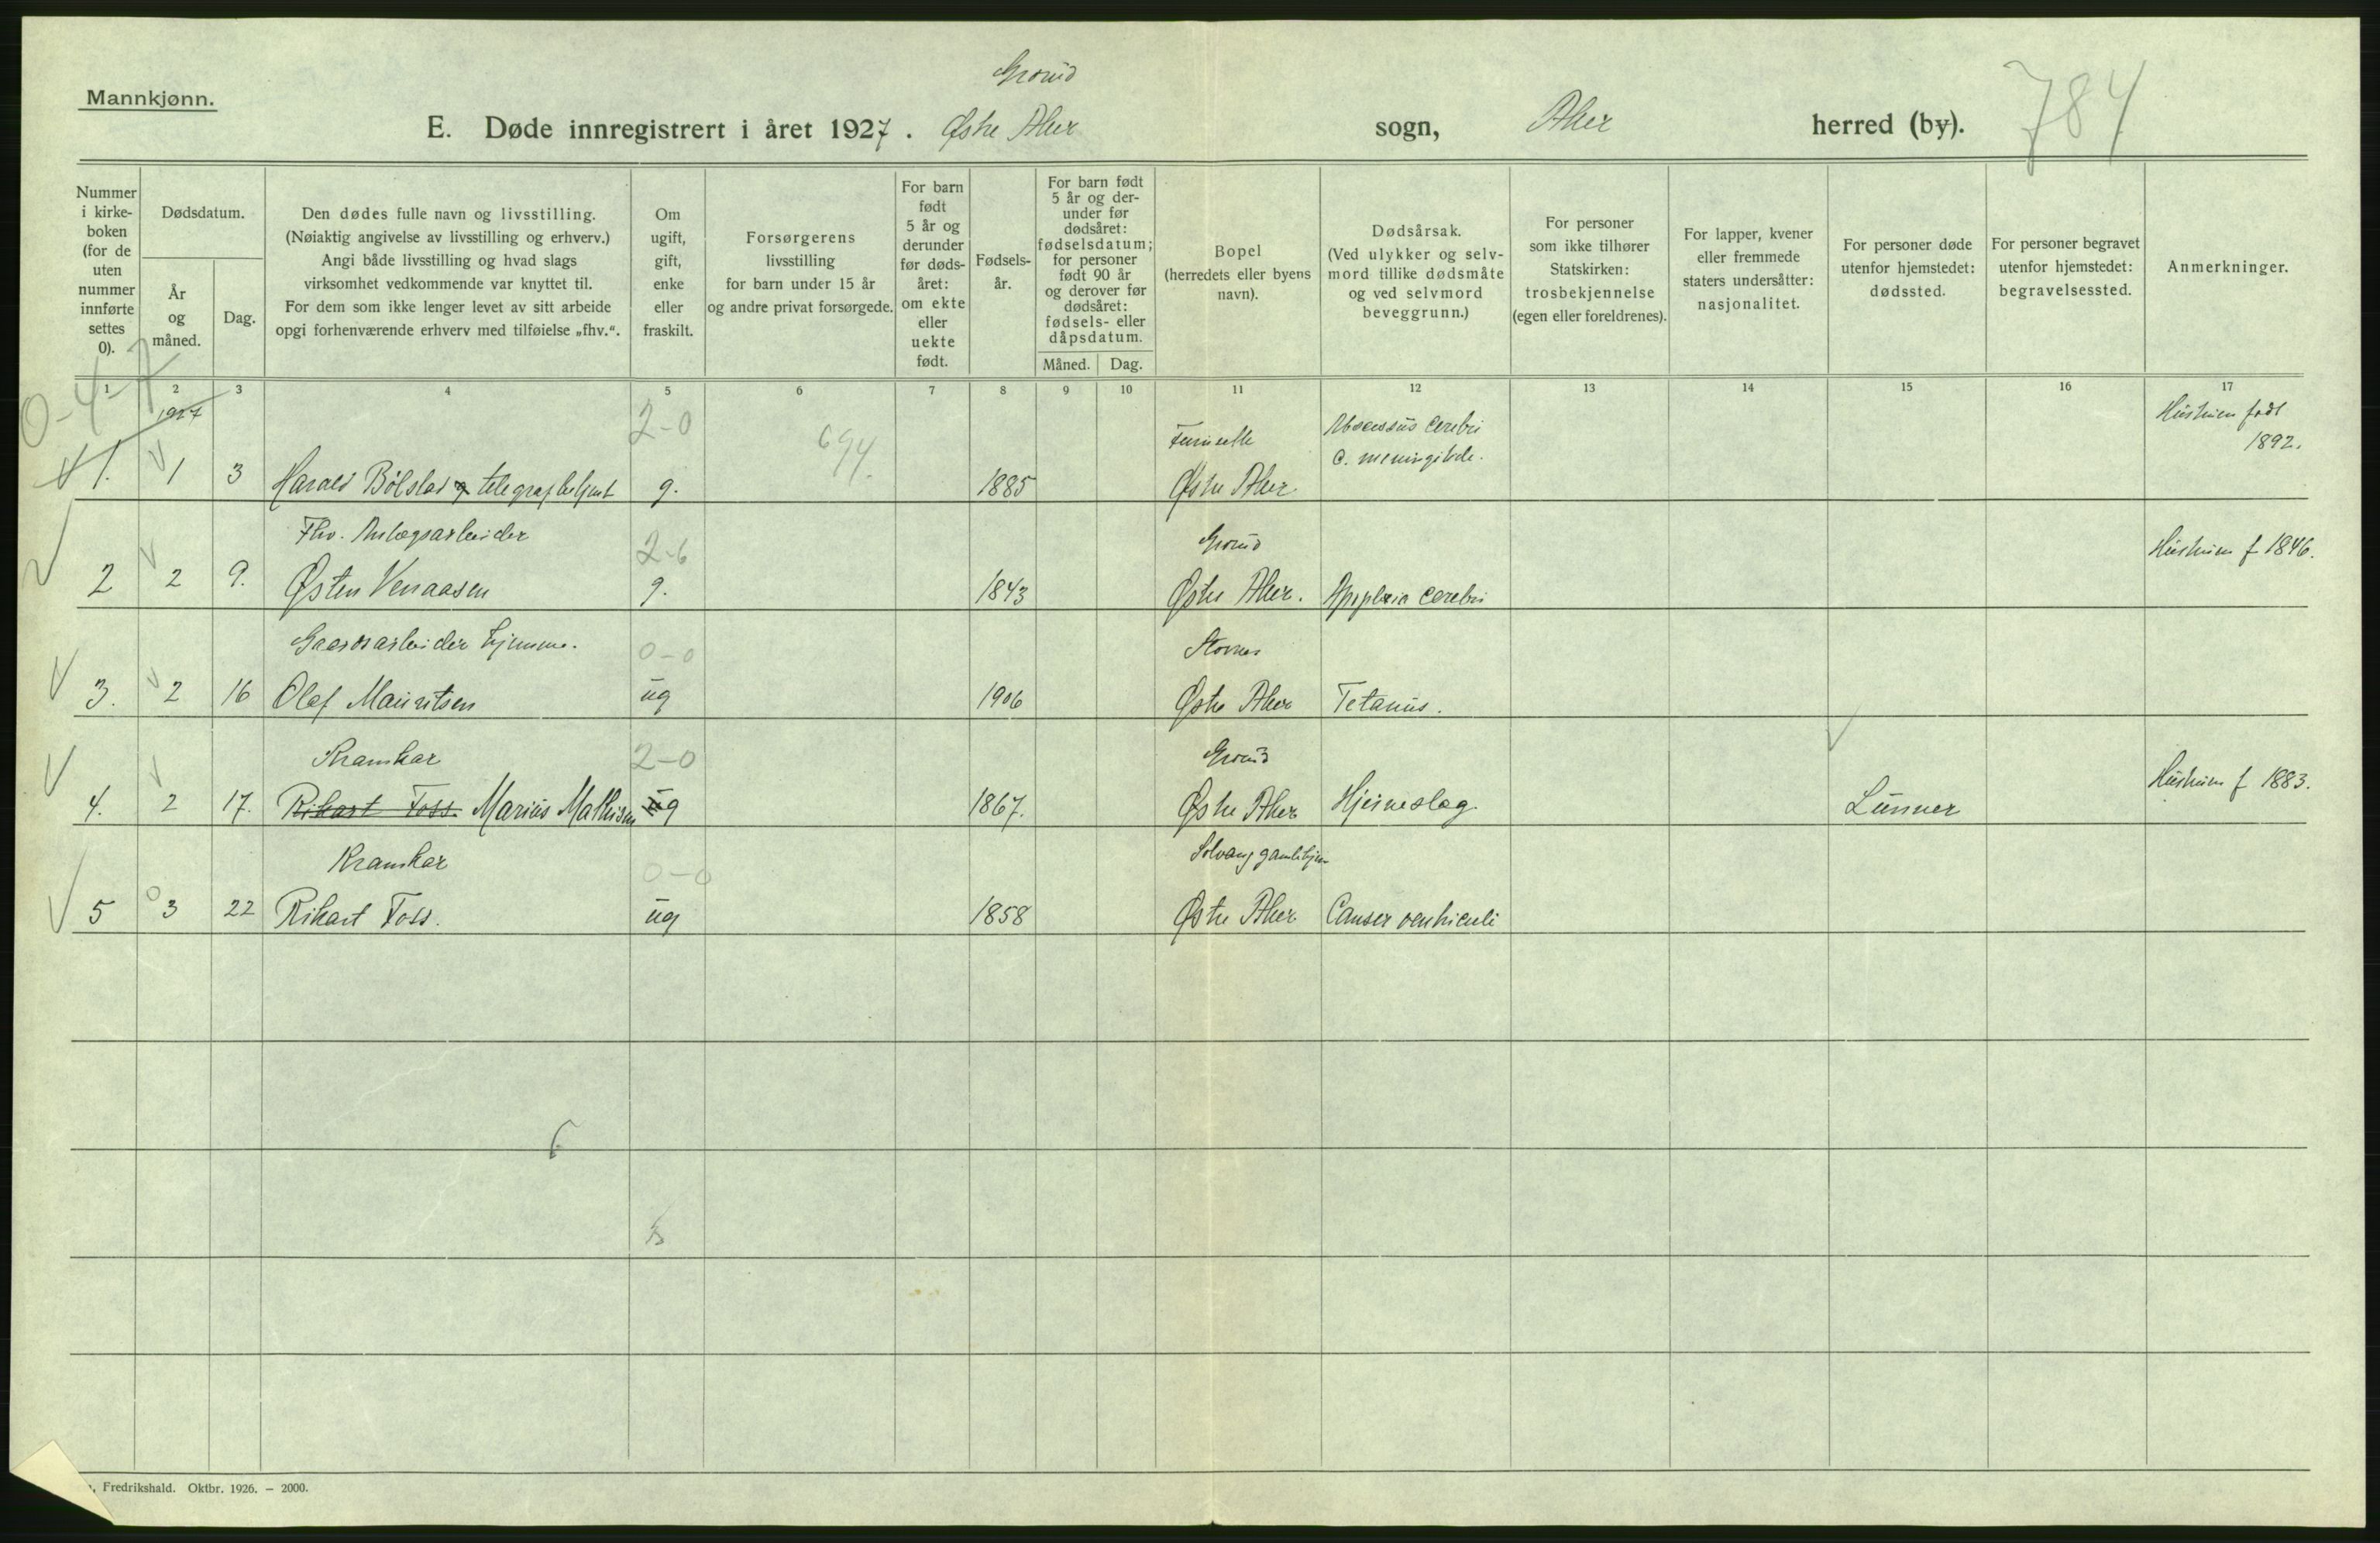 Mannkjønn.
Grorud
E. Døde innregistrert i året 1927. Østre Aker sogn, Aker herred (by).
784
Nummer i kirkeboken (for de uten nummer innførte settes 0).
Dødsdatum.
År og måned.
Dag.
Den dødes fulle navn og livsstilling.
(Nøiaktig angivelse av livsstilling og erhverv.)
Angi både livsstilling og hvad slags
virksomhet vedkommende var knyttet til.
For dem som ikke lenger levet av sitt arbeide
opgi forhenværende erhverv med tilføielse „fhv.“.
Om ugift, gift, enke eller fraskilt.
Forsørgerens
livsstilling
for barn under 15 år
og andre privat forsørgede.
For barn født 5 år og derunder før dødsåret: om ekte eller uekte født.
Fødselsår.
For barn født 5 år og derunder før dødsåret: fødselsdatum; for personer født 90 år og derover før dødsåret: fødsels- eller dåpsdatum.
Måned. Dag.
Bopel
(herredets eller byens
navn).
Dødsårsak.
(Ved ulykker og selv-
mord tillike dødsmåte
og ved selvmord
beveggrunn.)
For personer
som ikke tilhører
Statskirken:
trosbekjennelse
(egen eller foreldrenes).
For lapper, kvener
eller fremmede
staters undersåtter:
nasjonalitet.
For personer døde
utenfor hjemstedet:
dødssted.
For personer begravet
utenfor hjemstedet:
begravelsessted.
Anmerkninger.
1 2 3 4 5 6 7 8 9 10 11 12 13 14 15 16 17
0-4-7
1927 2-0 694. Abscessus cerebri Hustruen født
c. meningitide. 1892.
1. 1 3 Harald Bølstad g. 1885 Østre Aker
Fhv. Anlægsarbeider 2-6 Grorud Hustruen f 1846.
2 2 9. Østen Venaasen g. 1843 Østre Aker. Apoplexia cerebri
Gaardsarbeider hjemme. 0-0 Stovner
3. 2 16 Olaf Mauritsen ug 1906 Østre Aker Tetanus.
Kramkar 2-0 Grorud Hustruen f 1883.
4. 2 17. Rikart Foss. Marius Mathisen ug 1867. Østre Aker Hjerneslag. Lunner
Kramkar 0-0 Solvang gamlehjem
5 3 22 Rikart Foss. ug 1858 Østre Aker Canser ventriculi
, Fredrikshald. Oktbr. 1926. – 2000.